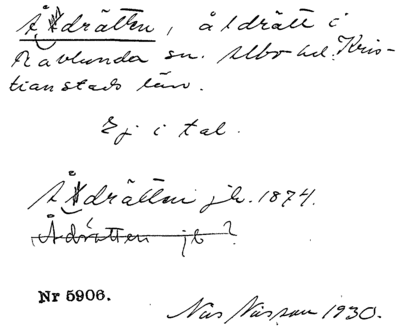 Åldrätten, åldrätt i
Ravlunda sn. Albo hd. Kris-
tianstads län.
Ej i tal.
Åldrätten jb. 1874.
Ådrätten jb?
Nr 5906.
1930.